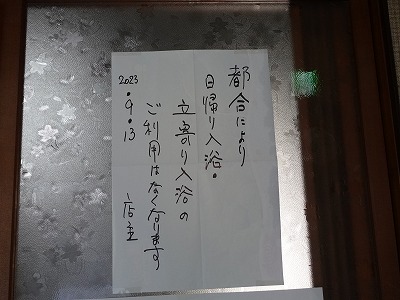 都合により
日帰り入浴・
立寄り入浴の
ご利用はなくなります
2023・9・13 店主